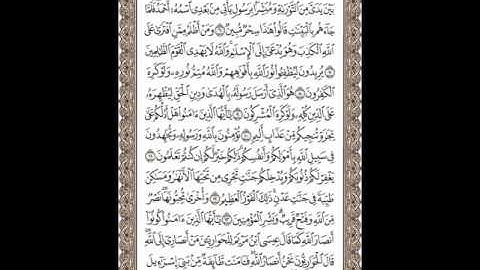 بَيْنَ يَدَىَّ مِنَ ٱلتَّوْرَىٰةِ وَمُبَشِّرًۢا بِرَسُولٍ يَأْتِى مِنۢ بَعْدِى ٱسْمُهُۥٓ أَحْمَدُ فَلَمَّا
جَآءَهُم بِٱلْبَيِّنَٰتِ قَالُوا۟ هَٰذَا سِحْرٌ مُّبِينٌ ٦ وَمَنْ أَظْلَمُ مِمَّنِ ٱفْتَرَىٰ عَلَى
ٱللَّهِ ٱلْكَذِبَ وَهُوَ يُدْعَىٰٓ إِلَى ٱلْإِسْلَٰمِ وَٱللَّهُ لَا يَهْدِى ٱلْقَوْمَ ٱلظَّٰلِمِينَ
٧ يُرِيدُونَ لِيُطْفِـُٔوا۟ نُورَ ٱللَّهِ بِأَفْوَٰهِهِمْ وَٱللَّهُ مُتِمُّ نُورِهِۦ وَلَوْ كَرِهَ
ٱلْكَٰفِرُونَ ٨ هُوَ ٱلَّذِىٓ أَرْسَلَ رَسُولَهُۥ بِٱلْهُدَىٰ وَدِينِ ٱلْحَقِّ لِيُظْهِرَهُۥ
عَلَى ٱلدِّينِ كُلِّهِۦ وَلَوْ كَرِهَ ٱلْمُشْرِكُونَ ٩ يَٰٓأَيُّهَا ٱلَّذِينَ ءَامَنُوا۟ هَلْ أَدُلُّكُمْ عَلَىٰ
تِجَٰرَةٍ تُنجِيكُم مِّنْ عَذَابٍ أَلِيمٍ ١٠ تُؤْمِنُونَ بِٱللَّهِ وَرَسُولِهِۦ وَتُجَٰهِدُونَ
فِى سَبِيلِ ٱللَّهِ بِأَمْوَٰلِكُمْ وَأَنفُسِكُمْ ذَٰلِكُمْ خَيْرٌ لَّكُمْ إِن كُنتُمْ تَعْلَمُونَ ١١
يَغْفِرْ لَكُمْ ذُنُوبَكُمْ وَيُدْخِلْكُمْ جَنَّٰتٍ تَجْرِى مِن تَحْتِهَا ٱلْأَنْهَٰرُ وَمَسَٰكِنَ
طَيِّبَةً فِى جَنَّٰتِ عَدْنٍ ذَٰلِكَ ٱلْفَوْزُ ٱلْعَظِيمُ ١٢ وَأُخْرَىٰ تُحِبُّونَهَا نَصْرٌ
مِّنَ ٱللَّهِ وَفَتْحٌ قَرِيبٌ وَبَشِّرِ ٱلْمُؤْمِنِينَ ١٣ يَٰٓأَيُّهَا ٱلَّذِينَ ءَامَنُوا۟ كُونُوٓا۟
أَنصَارَ ٱللَّهِ كَمَا قَالَ عِيسَى ٱبْنُ مَرْيَمَ لِلْحَوَارِيِّـۧنَ مَنْ أَنصَارِىٓ إِلَى ٱللَّهِ
قَالَ ٱلْحَوَارِيُّونَ نَحْنُ أَنصَارُ ٱللَّهِ فَـَٔامَنَت طَّآئِفَةٌ مِّنۢ بَنِىٓ إِسْرَٰٓءِيلَ